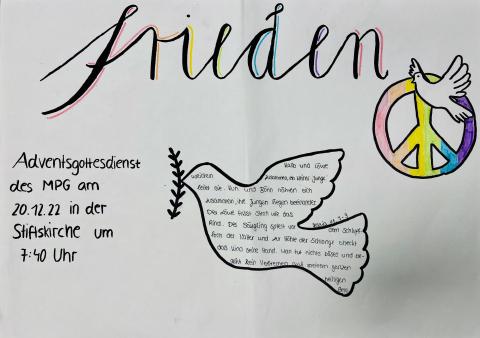 frieden
Adventsgottesdienst
des MPG am
20.12.22 in der
Stiftskirche um
7:40 Uhr
Kalb und Löwe
weiden zusammen, ein kleiner Junge
leitet sie. Kuh und Bärin nähren sich
zusammen, ihre Jungen liegen beieinander.
Der Löwe frisst Stroh wie das
Rind. Der Säugling spielt vor dem Schlupf-
loch der Natter und zur Höhle der Schlange streckt
das Kind seine Hand. Man tut nichts Böses und be-
geht kein Verbrechen auf meinem ganzen
heiligen
Berg